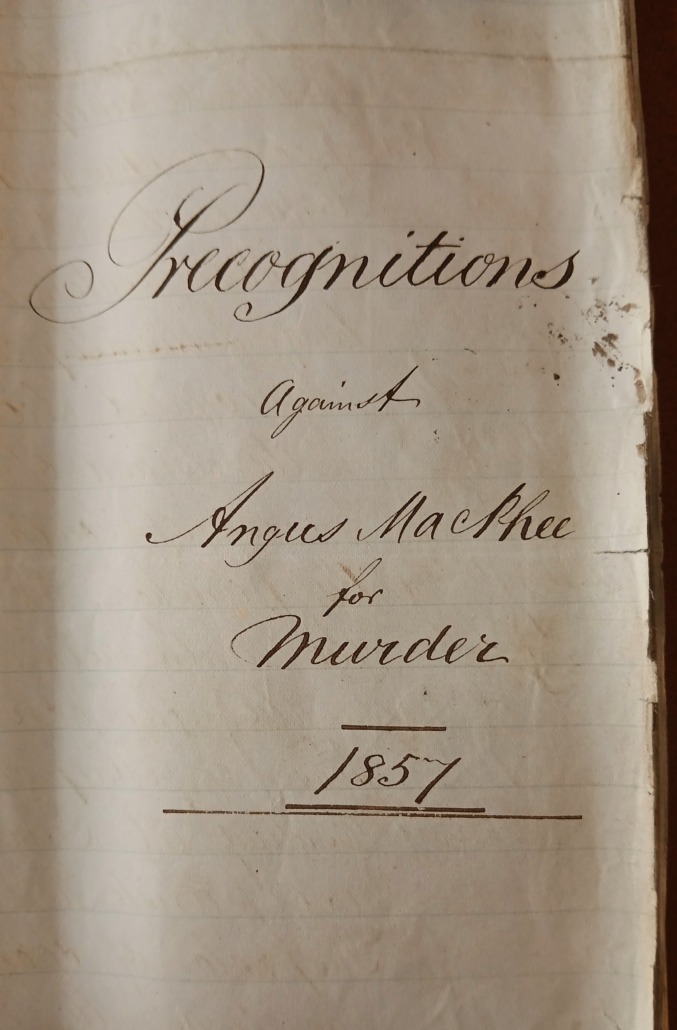 Precognitions
Against
Angus MacPhee
for
Murder
1857